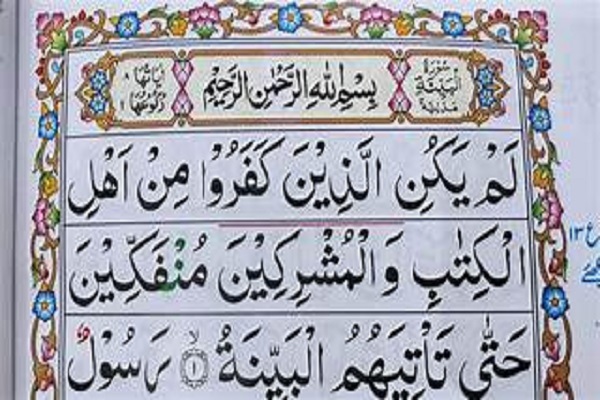 سُوْرَةُ الْبَيِّنَةِ مَدَنِيَّةٌ
بِسْمِ اللّٰهِ الرَّحْمٰنِ الرَّحِيْمِ
اٰيَاتُهَا ٨ رُكُوْعُهَا ١
لَمْ يَكُنِ الَّذِيْنَ كَفَرُوْا مِنْ اَهْلِ
الْكِتٰبِ وَالْمُشْرِكِيْنَ مُنْفَكِّيْنَ
حَتّٰى تَاْتِيَهُمُ الْبَيِّنَةُ ۙ ﴿١﴾ رَسُوْلٌ
١٣